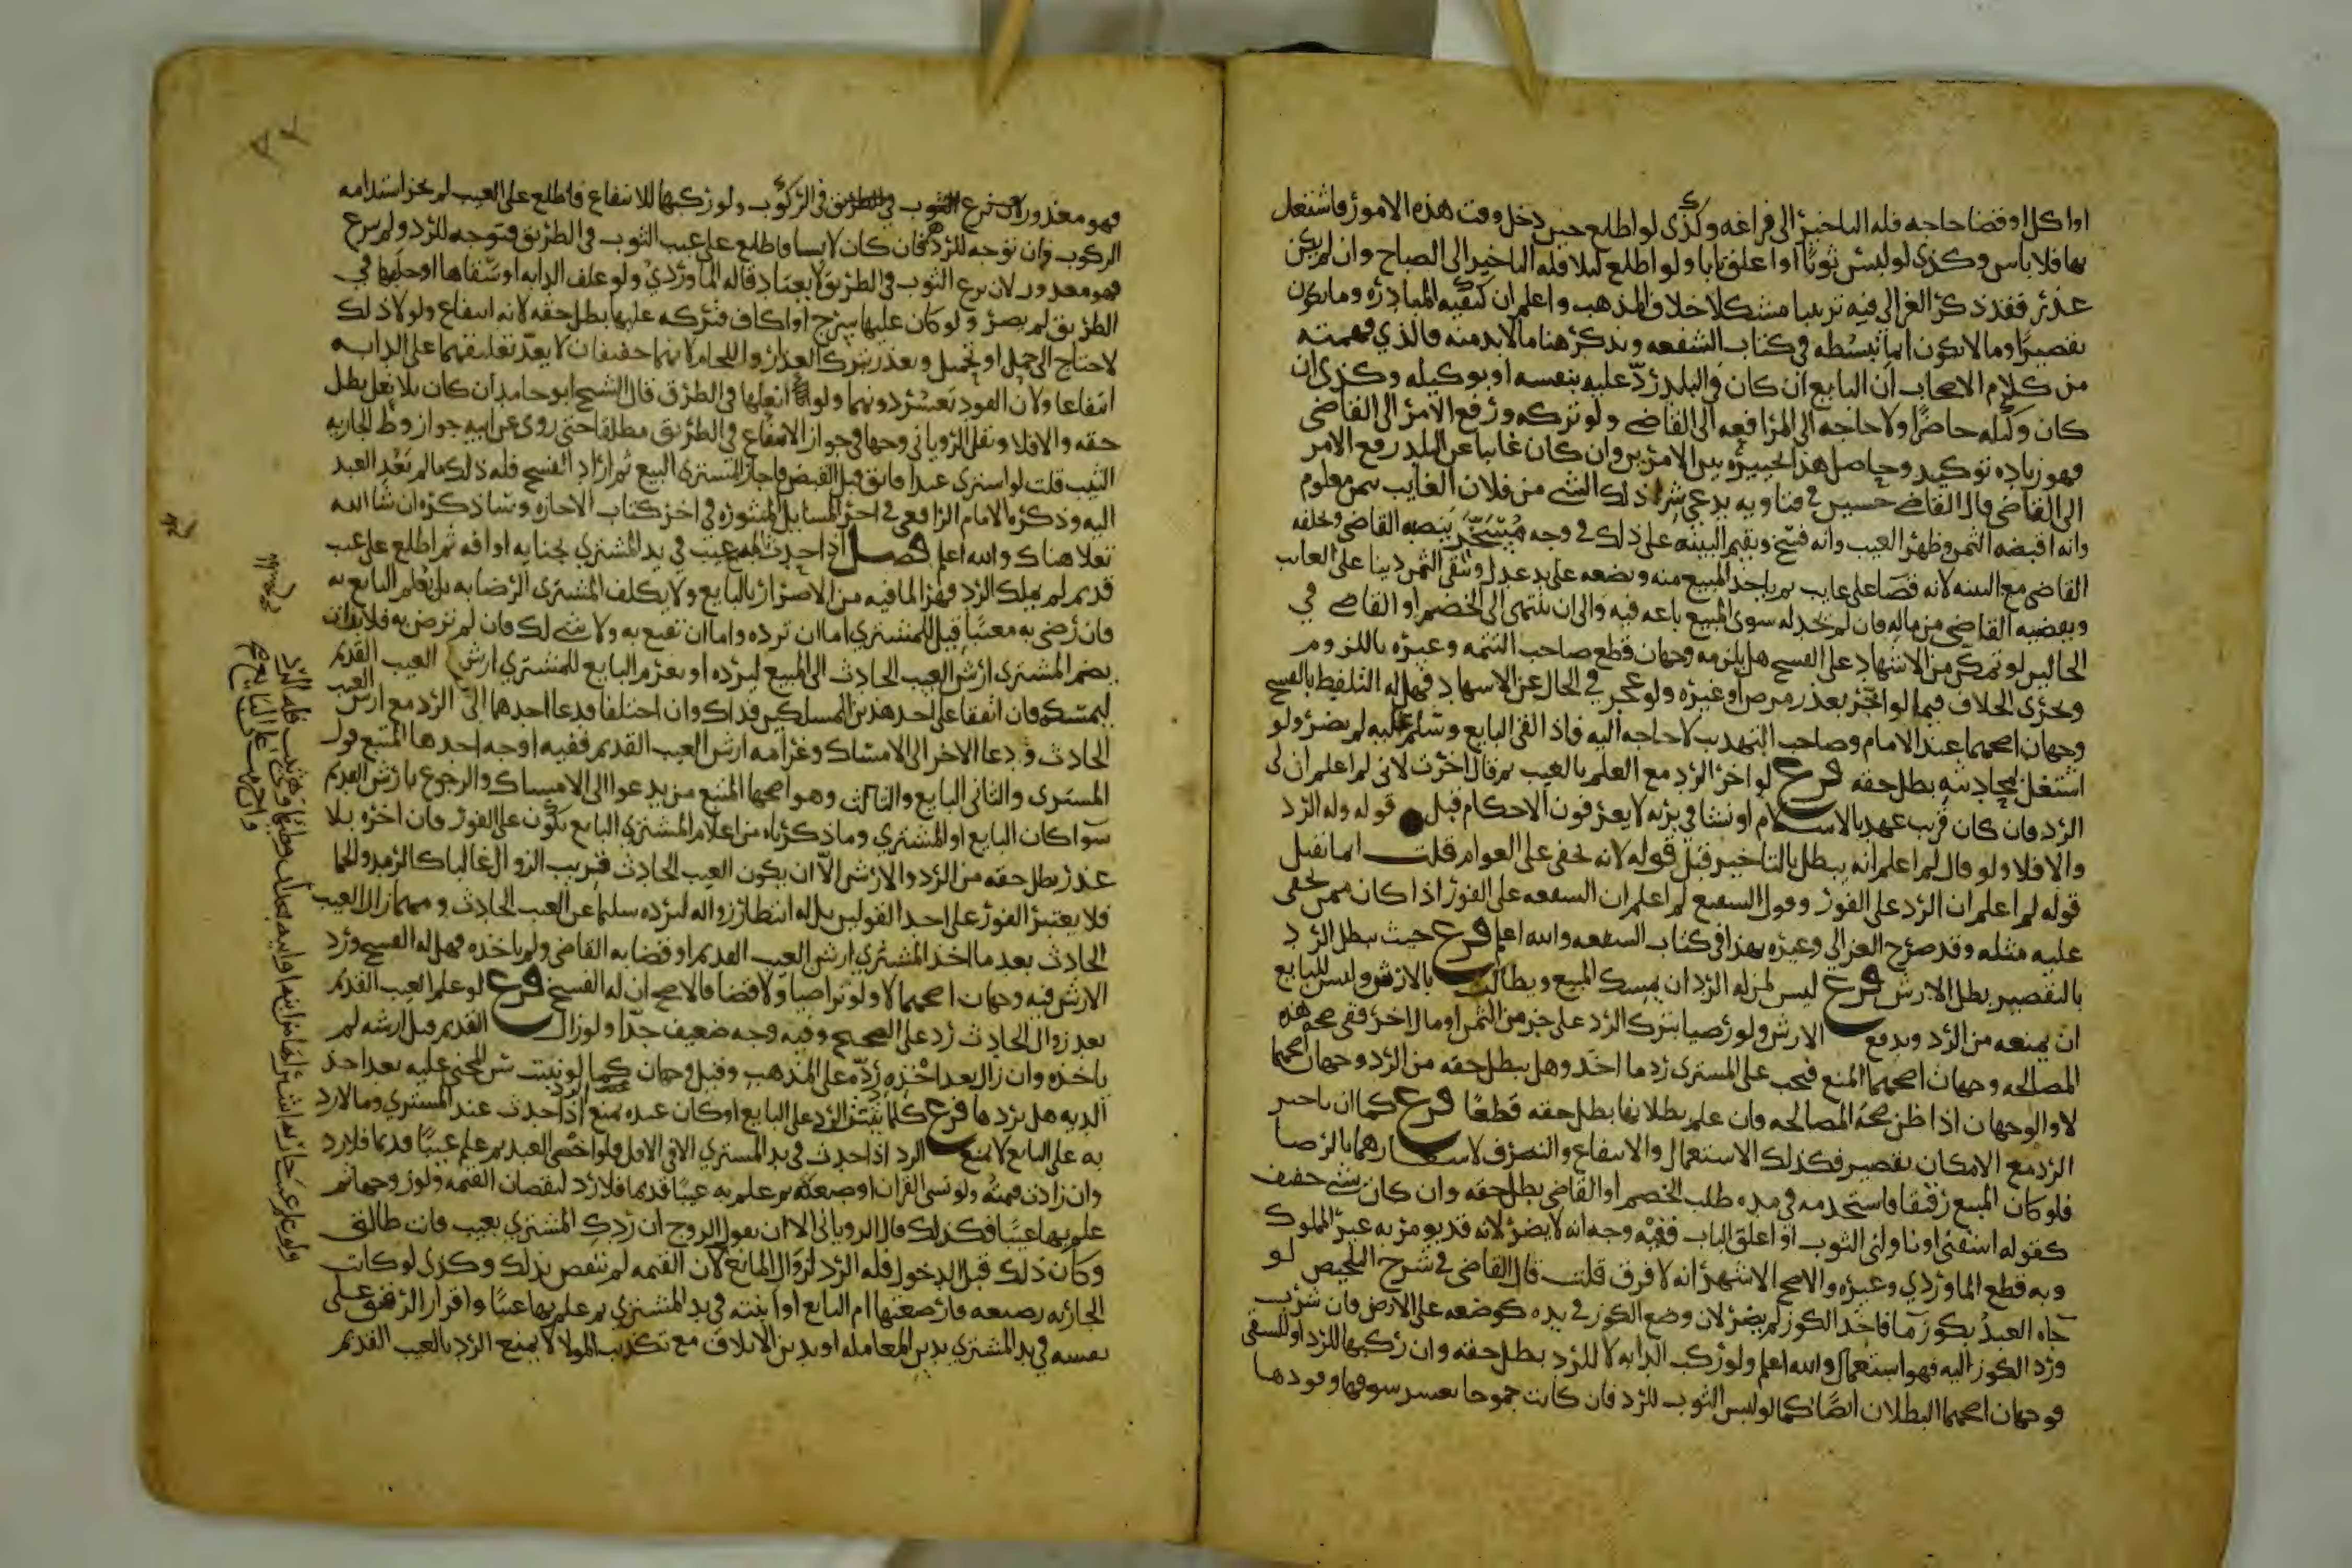 او اكل او قضا حاجه فله التاخير الى فراغه وكذى لو اطلع حين دخل وقت هذه الامور فاشتغل
بها فلا باس وكذى لو لبس ثوبا او اغلق بابا ولو اطلع ليلا فله التاخير الى الصباح وان لم يكن
عذر فقد ذكر الغزالي فيه ترتيبا مشكلا خلاف المذهب واعلم ان كيفيه المبادره وما يكون
تقصيرا وما لا يكون انما نبسطه في كتاب الشفعه ونذكر هنا ما لا بد منه فالذي فهمته
من كلام الاصحاب ان البايع ان كان في البلد رد عليه بنفسه او بوكيله وكذى ان
كان وكيله حاضرا ولا حاجه الى المرافعه الى القاضي ولو تركه ورفع الامر الى القاضي
فهو زياده توكيد وحاصل هذا تخييره بين الامرين وان كان غايبا عن البلد رفع الامر
الى القاضي قال القاضي حسين في فتاويه يدعي شرا ذلك الشي من فلان الغايب بثمن معلوم
وانه اقبضه الثمن وظهر العيب وانه فسخ ويقيم البينه على ذلك في وجه مسخر ينصبه القاضي ويحلفه
القاضي مع البينه لانه قضا على غايب ثم ياخذ المبيع منه ويضعه على يد عدل ويبقى الثمن دينا على الغايب
ويقضيه القاضي من ماله فان لم يجد له سوى المبيع باعه فيه والى ان ينتهى الى الخصم او القاضي في
الحالين لو تمكن من الاشهاد على الفسخ هل يلزمه وجهان قطع صاحب التتمه وغيره باللزوم
ويجرى الخلاف فيما لو اخر بعذر مرض او غيره ولو عجز في الحال عن الاشهاد فهل له التلفظ بالفسخ
وجهان اصحهما عند الامام وصاحب التهذيب لا حاجه اليه فاذا لقى البايع وسلم عليه لم يضر ولو
اشتغل بمحادثته بطل حقه فرع لو اخر الرد مع العلم بالعيب ثم قال اخرت لاني لم اعلم ان لى
الرد فان كان قريب عهد بالاسلام او نشا في بريه لا يعرفون الاحكام قبل قوله وله الرد
والا فلا ولو قال لم اعلم انه يبطل بالتاخير قبل قوله لانه يخفى على العوام قلت انما تقبل
قوله لم اعلم ان الرد على الفور وقول الشفيع لم اعلم ان الشفعه على الفور اذا كان ممن يخفى
عليه مثله وقد صرح الغزالي وغيره بهذا في كتاب الشفعه والله اعلم فرع حيث يبطل الرد
بالتقصير يبطل الارش فرع ليس لمن له الرد ان يمسك المبيع ويطالب بالارش وليس للبايع
ان يمنعه من الرد ويدفع الارش ولو رضيا بترك الرد على جز من الثمن او مال اخر ففي صحه هذه
المصالحه وجهان اصحهما المنع فيجب على المشترى رد ما اخذ وهل يبطل حقه من الرد وجهان اصحهما
لا والوجهان اذا ظن صحه المصالحه وان علم بطلانها بطل حقه قطعا فرع كما ان تاخير
الرد مع الامكان تقصير فكذلك الاستعمال والانتفاع والتصرف لاشعارهما بالرضا
فلو كان المبيع رقيقا فاستخدمه في مده طلب الخصم او القاضي بطل حقه وان كان بشي خفيف
كقوله اسقني او ناولنى الثوب او اغلق الباب ففيه وجه انه لا يضر لانه قد يومر به غير المملوك
وبه قطع الماوردي وغيره والاصح الاشهر انه لا فرق قلت قال القاضي في شرح التلخيص لو
جاه العبد بكوز ما فاخذ الكوز لم يضر لان وضع الكوز في يده كوضعه على الارض فان شرب
ورد الكوز اليه فهو استعمال والله اعلم ولو ركب الدابه لا للرد بطل حقه وان ركبها للرد او للسقي
فوجهان اصحهما البطلان ايضا كما لو لبس الثوب للرد فان كانت جموحا يعسر سوقها وقودها
فهو معذور في الركوب ولو ركبها للانتفاع فاطلع على العيب لم يجز استدامه
الركوب وان توجه للرد فان كان لابسا فاطلع على عيب الثوب في الطريق فتوجه للرد ولم ينزع
فهو معذور لان نزع الثوب في الطريق لا يعتاد قاله الماوردي ولو علف الدابه او سقاها او حلبها في
الطريق لم يضر ولو كان عليها سرج او اكاف فتركه عليها بطل حقه لانه انتفاع ولولا ذلك
لاحتاج الى حمل او تحميل ويعذر بترك العذار واللجام لانهما خفيفان لا يعد تعليقهما على الدابه
انتفاعا ولان القود يعسر دونهما ولو انعلها في الطريق قال الشيخ ابو حامد ان كان بلا نعل بطل
حقه والا فلا ونقل الروياني وجها في جواز الانتفاع في الطريق مطلقا حتى روى عن ابيه جواز وطي الجاريه
الثيب قلت لو اشترى عبدا فابق قبل القبض فاجاز المشتري البيع ثم اراد الفسخ فله ذلك ما لم يعد العبد
اليه وذكره الامام الرافعي في اخر المسايل المنثوره في اخر كتاب الاجاره وساذكره ان شا الله
تعلا هناك والله اعلم فصل اذا حدث بالمبيع عيب في يد المشتري بجنايه او افه ثم اطلع على عيب
قديم لم يملك الرد قهرا لما فيه من الاضرار بالبايع ولا يكلف المشتري الرضا به بل يعلم البايع به
فان رضى به معيبا قيل للمشتري اما ان ترده واما ان تقنع به ولا شي لك فان لم ترض به فلا بد ان
يضم المشتري ارش العيب الحادث الى المبيع ليرده او يغرم البايع للمشتري ارش العيب القديم
ليمسكه فان اتفقا على احد هذين المسلكين فذاك وان اختلفا فدعا احدهما الى الرد مع ارش العيب
الحادث ودعا الاخر الى الامساك وغرامه ارش العيب القديم ففيه اوجه احدها المتبع قول
المشترى والثاني البايع والثالث وهو اصحها المتبع من يدعوا الى الامساك والرجوع بارش القديم
سوا كان البايع او المشتري وما ذكرناه من اعلام المشتري البايع يكون على الفور فان اخره بلا
عذر بطل حقه من الرد والارش الا ان يكون العيب الحادث قريب الزوال غالبا كالرمد والحما
فلا يعتبر الفور على احد القولين بل له انتظار زواله ليرده سليما عن العيب الحادث ومهما زال العيب
الحادث بعد ما اخذ المشتري ارش العيب القديم او قضا به القاضي ولم ياخذه فهل له الفسخ ورد
الارش فيه وجهان اصحهما لا ولو تراضيا ولا قضا فالاصح ان له الفسخ فرع لو علم العيب القديم
بعد زوال الحادث رد على الصحيح وفيه وجه ضعيف جدا ولو زال القديم قبل ارشه لم
ياخذه وان زال بعد اخذه رده على المذهب وقيل وجهان كما لو نبتت سن المجني عليه بعد اخذ
الديه هل يردها فرع كلما يثبت الرد على البايع لو كان عنده يمنع الرد اذا حدث عند المشتري وما لا رد
به على البايع لا يمنع الرد اذا حدث في يد المشتري الا في الاقل فلو اخصى العبد ثم علم عيبا قديما فلا رد
وان زادت قيمته ولو نسى القران او صنعه ثم علم به عيبا قديما فلا رد لنقصان القيمه ولو زوجها ثم
علم بها عيبا فكذلك قال الروياني الا ان يقول الزوج ان ردك المشتري بعيب فانت طالق
وكان ذلك قبل الدخول فله الرد لزوال المانع لان القيمه لم تنقص بذلك وكذى لو كانت
الجاريه رضيعه فارضعتها ام البايع او ابنته في يد المشتري ثم علم بها عيبا واقرار الرقيق على
نفسه في يد المشتري بدين المعامله او بدين الاتلاف مع تكذيب المولا لا يمنع الرد بالعيب القديم